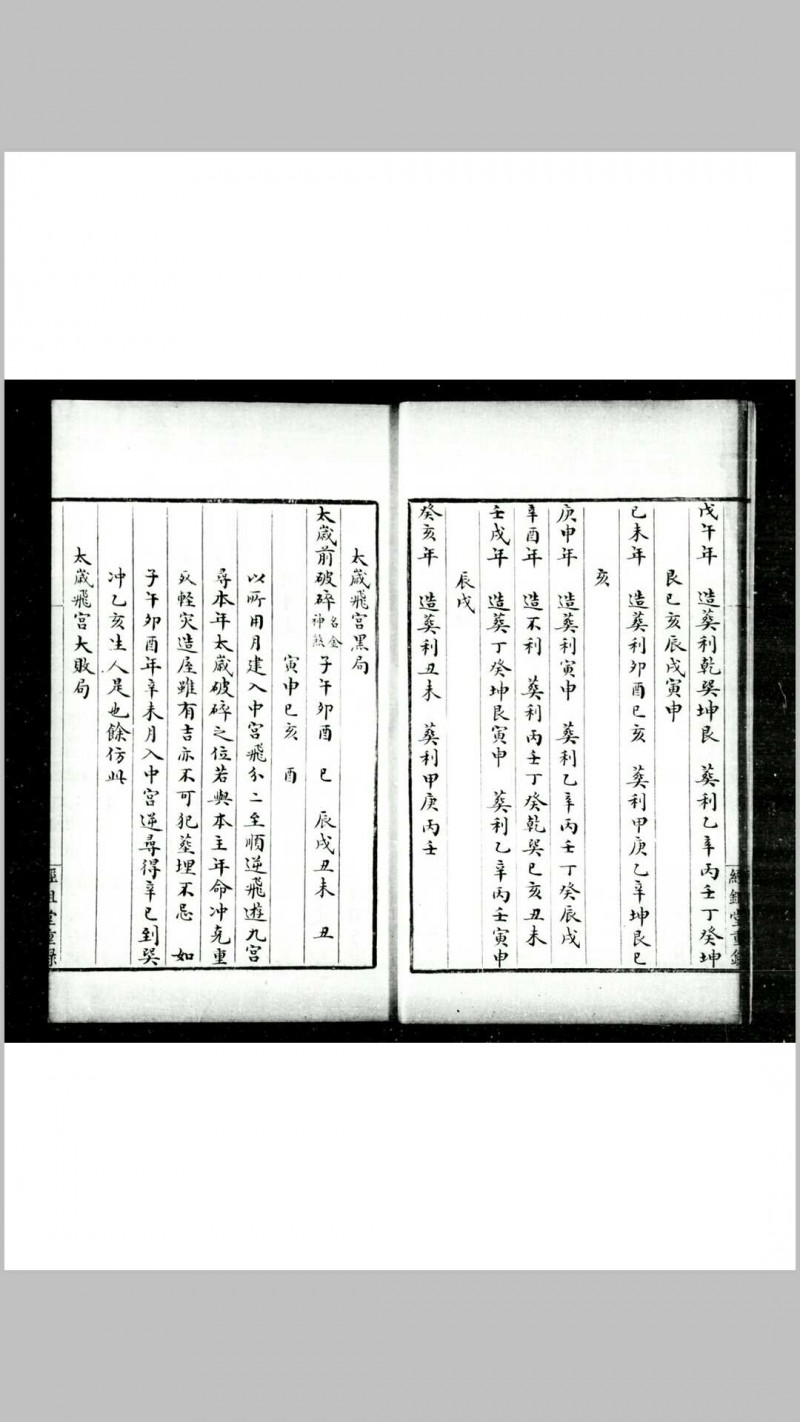 戊午年　造葬利乾巽坤艮　葬利乙辛丙壬丁癸坤
艮巳亥辰戌寅申
己未年　造葬利卯酉巳亥　葬利甲庚乙辛坤艮巳
亥
庚申年　造葬利寅申　葬利乙辛丙壬丁癸辰戌
辛酉年　造不利　葬利丙壬丁癸乾巽巳亥丑未
壬戌年　造葬丁癸坤艮寅申　葬利乙辛丙壬寅申
辰戌
癸亥年　造葬利丑未　葬利甲庚丙壬
太歲飛宮黑局
太歲前破碎 名金神煞 子午卯酉　巳　辰戌丑未　丑
寅申巳亥　酉
以所用月建入中宮飛分二至順逆飛遊九宮
尋本年太歲破碎之位若與本主年命冲克重
災輕灾造座雖有吉亦不可犯塟埋不忌　如
子午卯酉年辛未月入中宮逆尋得辛巳到巽
冲乙亥生人是也餘仿此
太歲飛宮大敗局
經鉏堂重錄